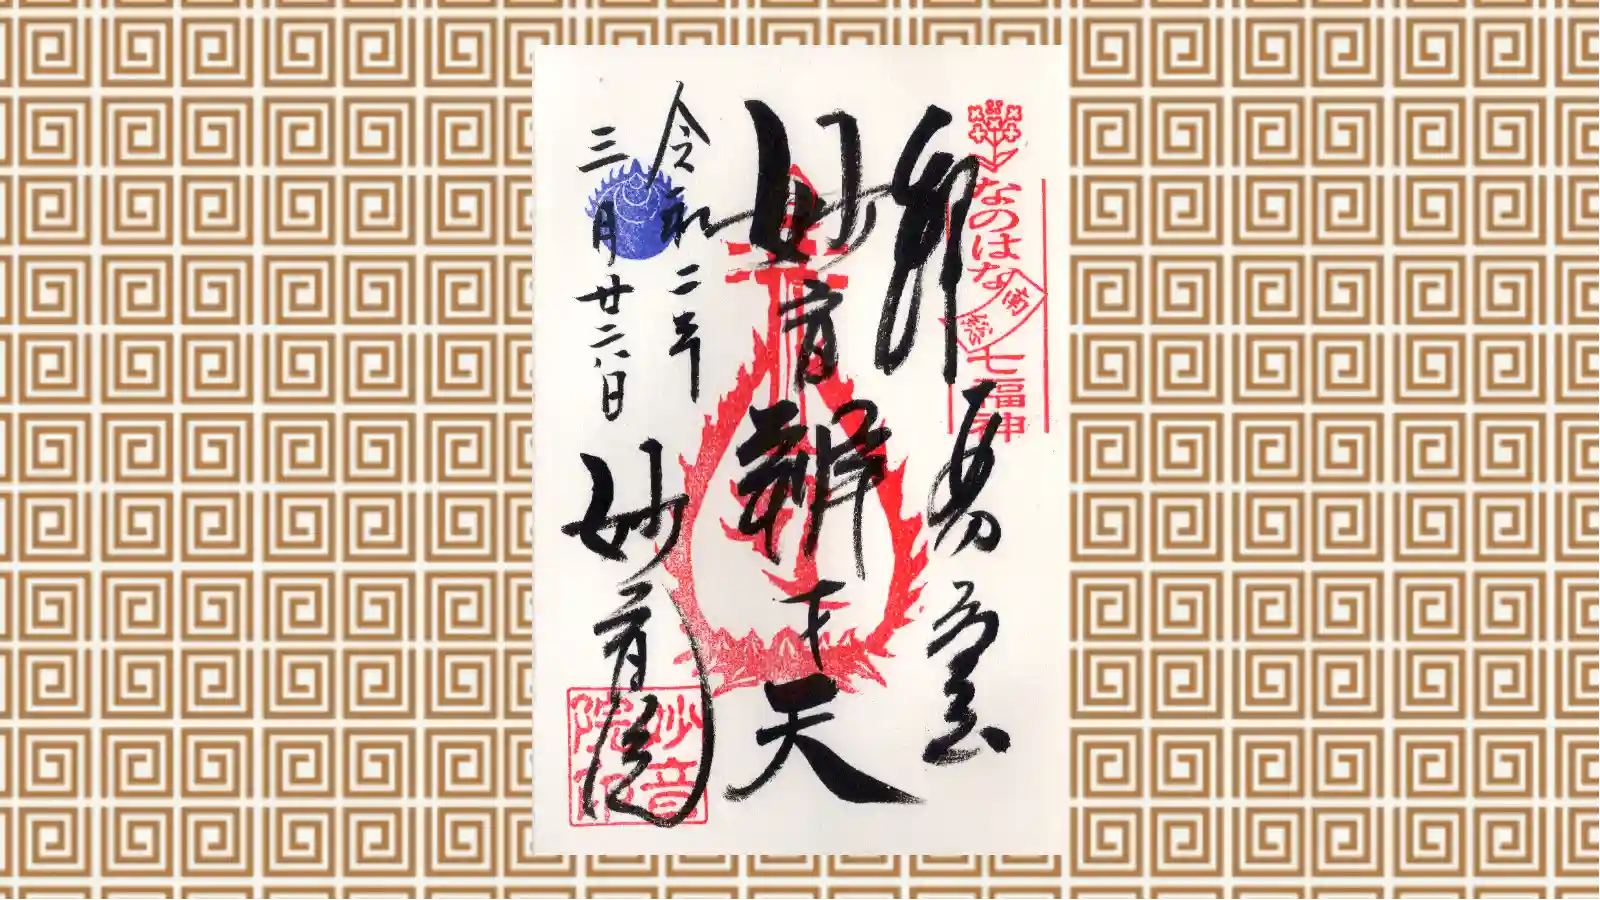 なのはな
南総
七福神
妙音辨才天
令和二年
三月廿二八日
妙音院
妙音
院印